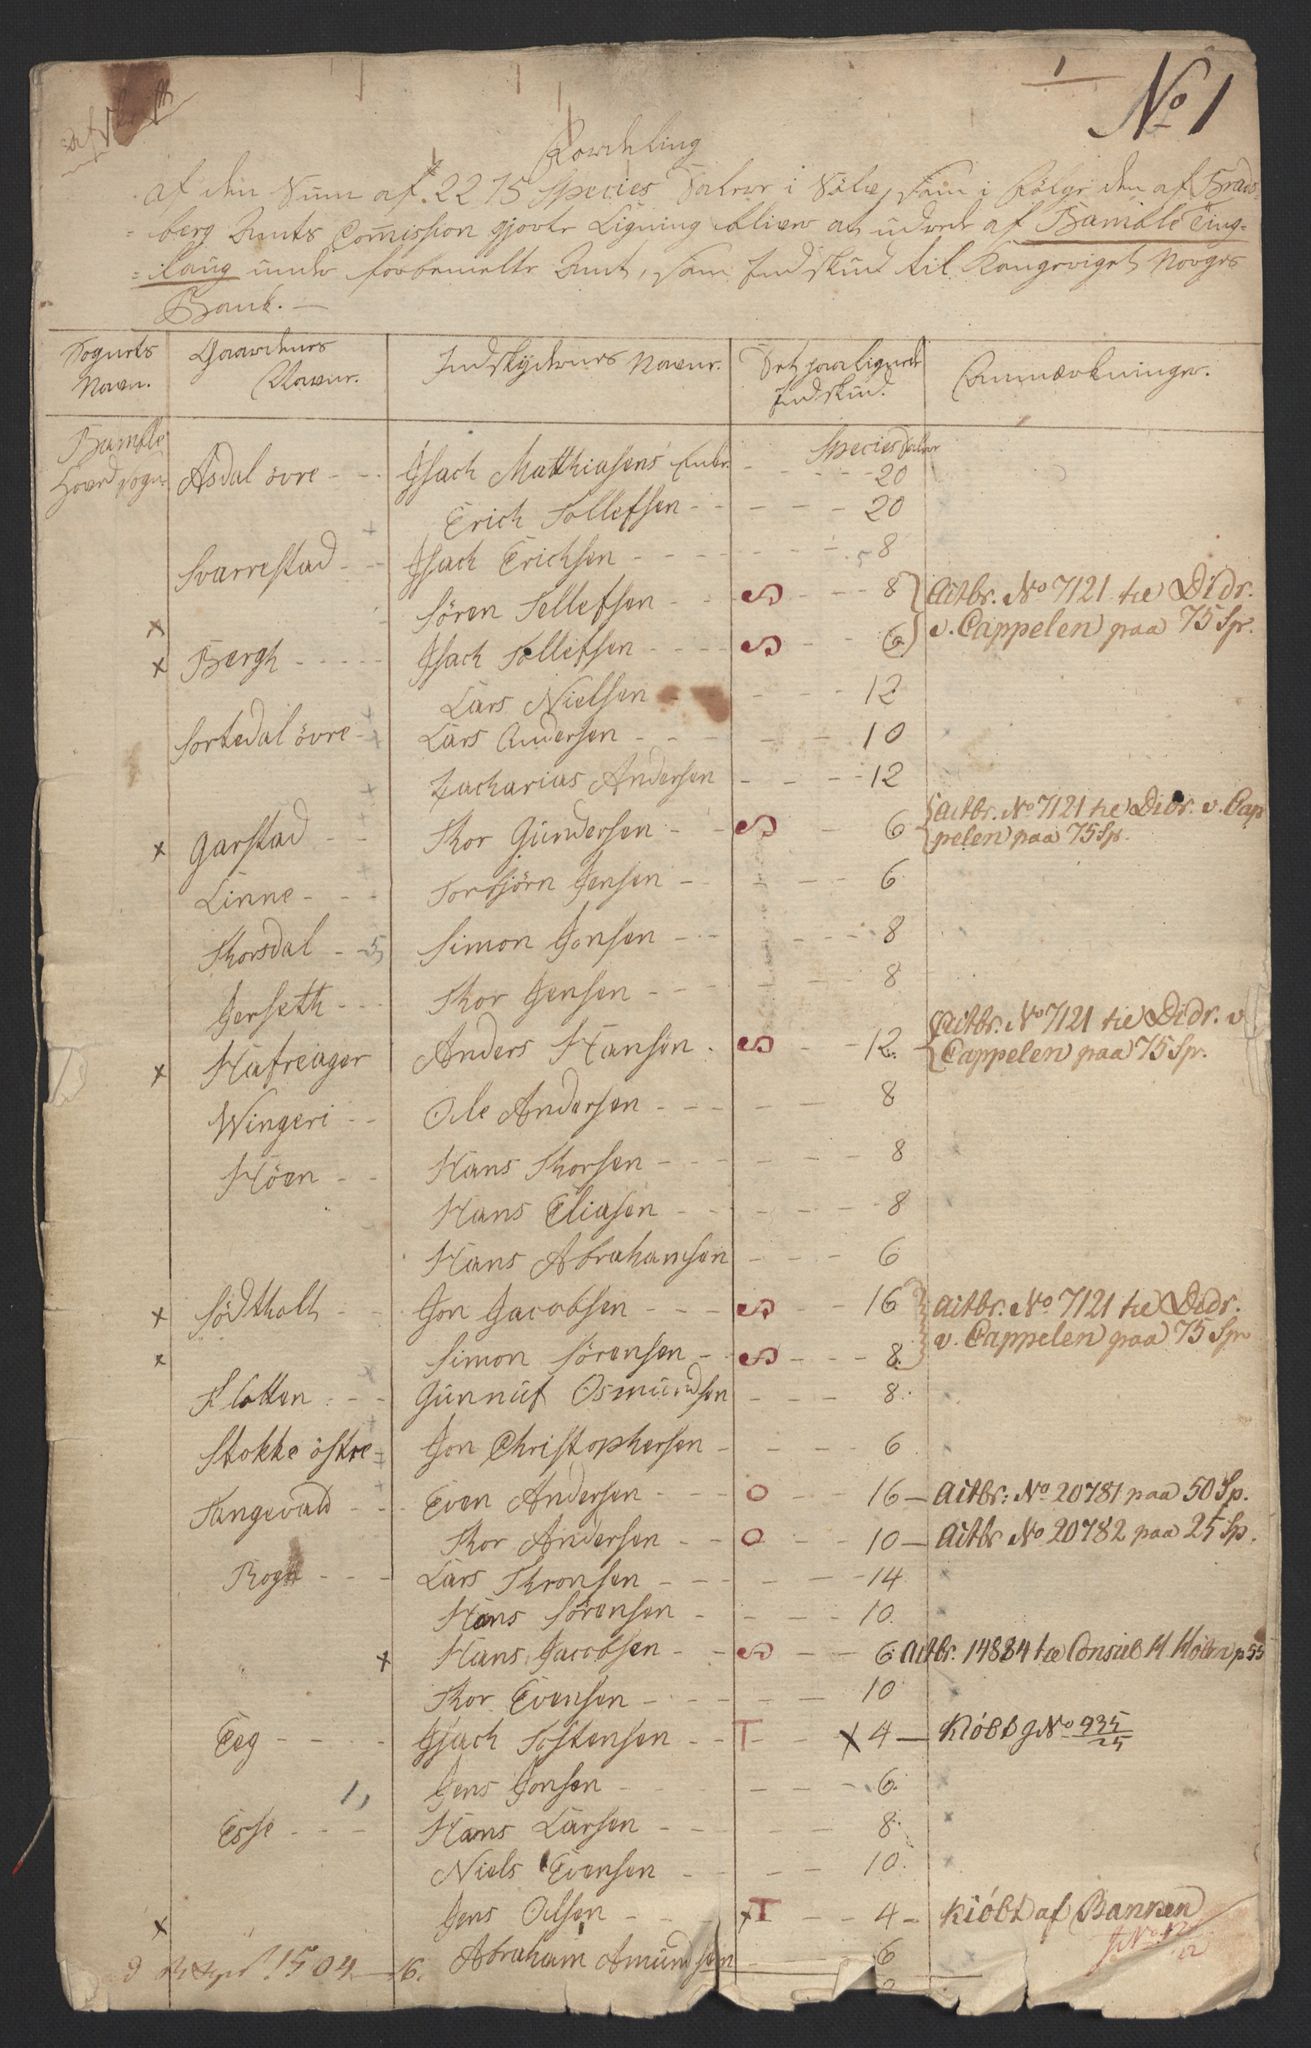 1
No 1
Fordeling
af den Sum af 2275 Species Daler i Sølv, som i følge den af Brads-
berg Amts Commission gjorte Ligning bliver at udrede af Bamble Ting-
laug under forbemelte Amt, som Indskud til Kongeriget Norges
Bank. —
Sognets Navn. Gaardenes Navne. Indskydernes Navne. Det paalignede Indskud. Anmærkninger.
Species Daler
Bamble Hoved Sogn Asdal övre - - Isach Mathiasens Enke - - 20
Erich Tollefsen - - 20
Svarrestad - - Isach Erichsen - - 8
Sören Tellefsen - - S - - 8 Actbr. No 7121 til Didr.
v. Cappelen paa 75 Sp.
x
x Bergh - - Isach Tollefsen - - S - - 6
Lars Nielsen - - 12
Sortedal övre - Lars Andersen - - 10
Zacharias Andersen - - 12
x Garstad - - Thor Gundersen - - S 6 Actbr. No 7121 til Didr. v. Cap
pelen paa 75 Sp.
Linne - - Torbjörn Jensen - - 6
Thorsdal - - 5 Simon Jonsen - - 8
Jerseth - - Thor Jensen - - 8
x Hafreager Anders Hansen . S - - 12. Actbr. No 7121 til Didr. v
Cappelen paa 75 Sp.
Wingeri - - Ole Andersen - - 8
Höen - - Hans Thorsen - - 8
Hans Eliasen - - 8
Hans Abrahamsen - - 6
x Södtholt - - Jon Jacobsen - - S - - 16 Actbr. No 7121 til Didr.
v. Cappelen paa 75 Sp
x Simon Sörensen - S - - 8
Flotten - - Gunnuf Osmundsen - - 8
Stokke östre - Jon Christophersen - - 6
Tangevald - - Even Andersen - - O 16 — Actbr: No 20781 paa 50 Sp.
Thor Andersen - - O 10 — Actbr No 20782 paa 25 Sp.
Rogn - - Lars Thronsen - - 14
Hans Sörensen - - 10.
x Hans Jacobsen - - S 6. Actbr. 14884 til Consul H Möller p 55
Thor Evensen - - 10
Eeg - - Isach Tostensen - - T - - x 4 — Kiöbt No 935/25
Jens Jonsen - - 6.
1,
Esse - - Hans Larsen - - 8.
Niels Evensen - - 10.
x Jens Olsen - - x T - - 4 - Kiöbt af Banken
Abraham Amundsen - - 6